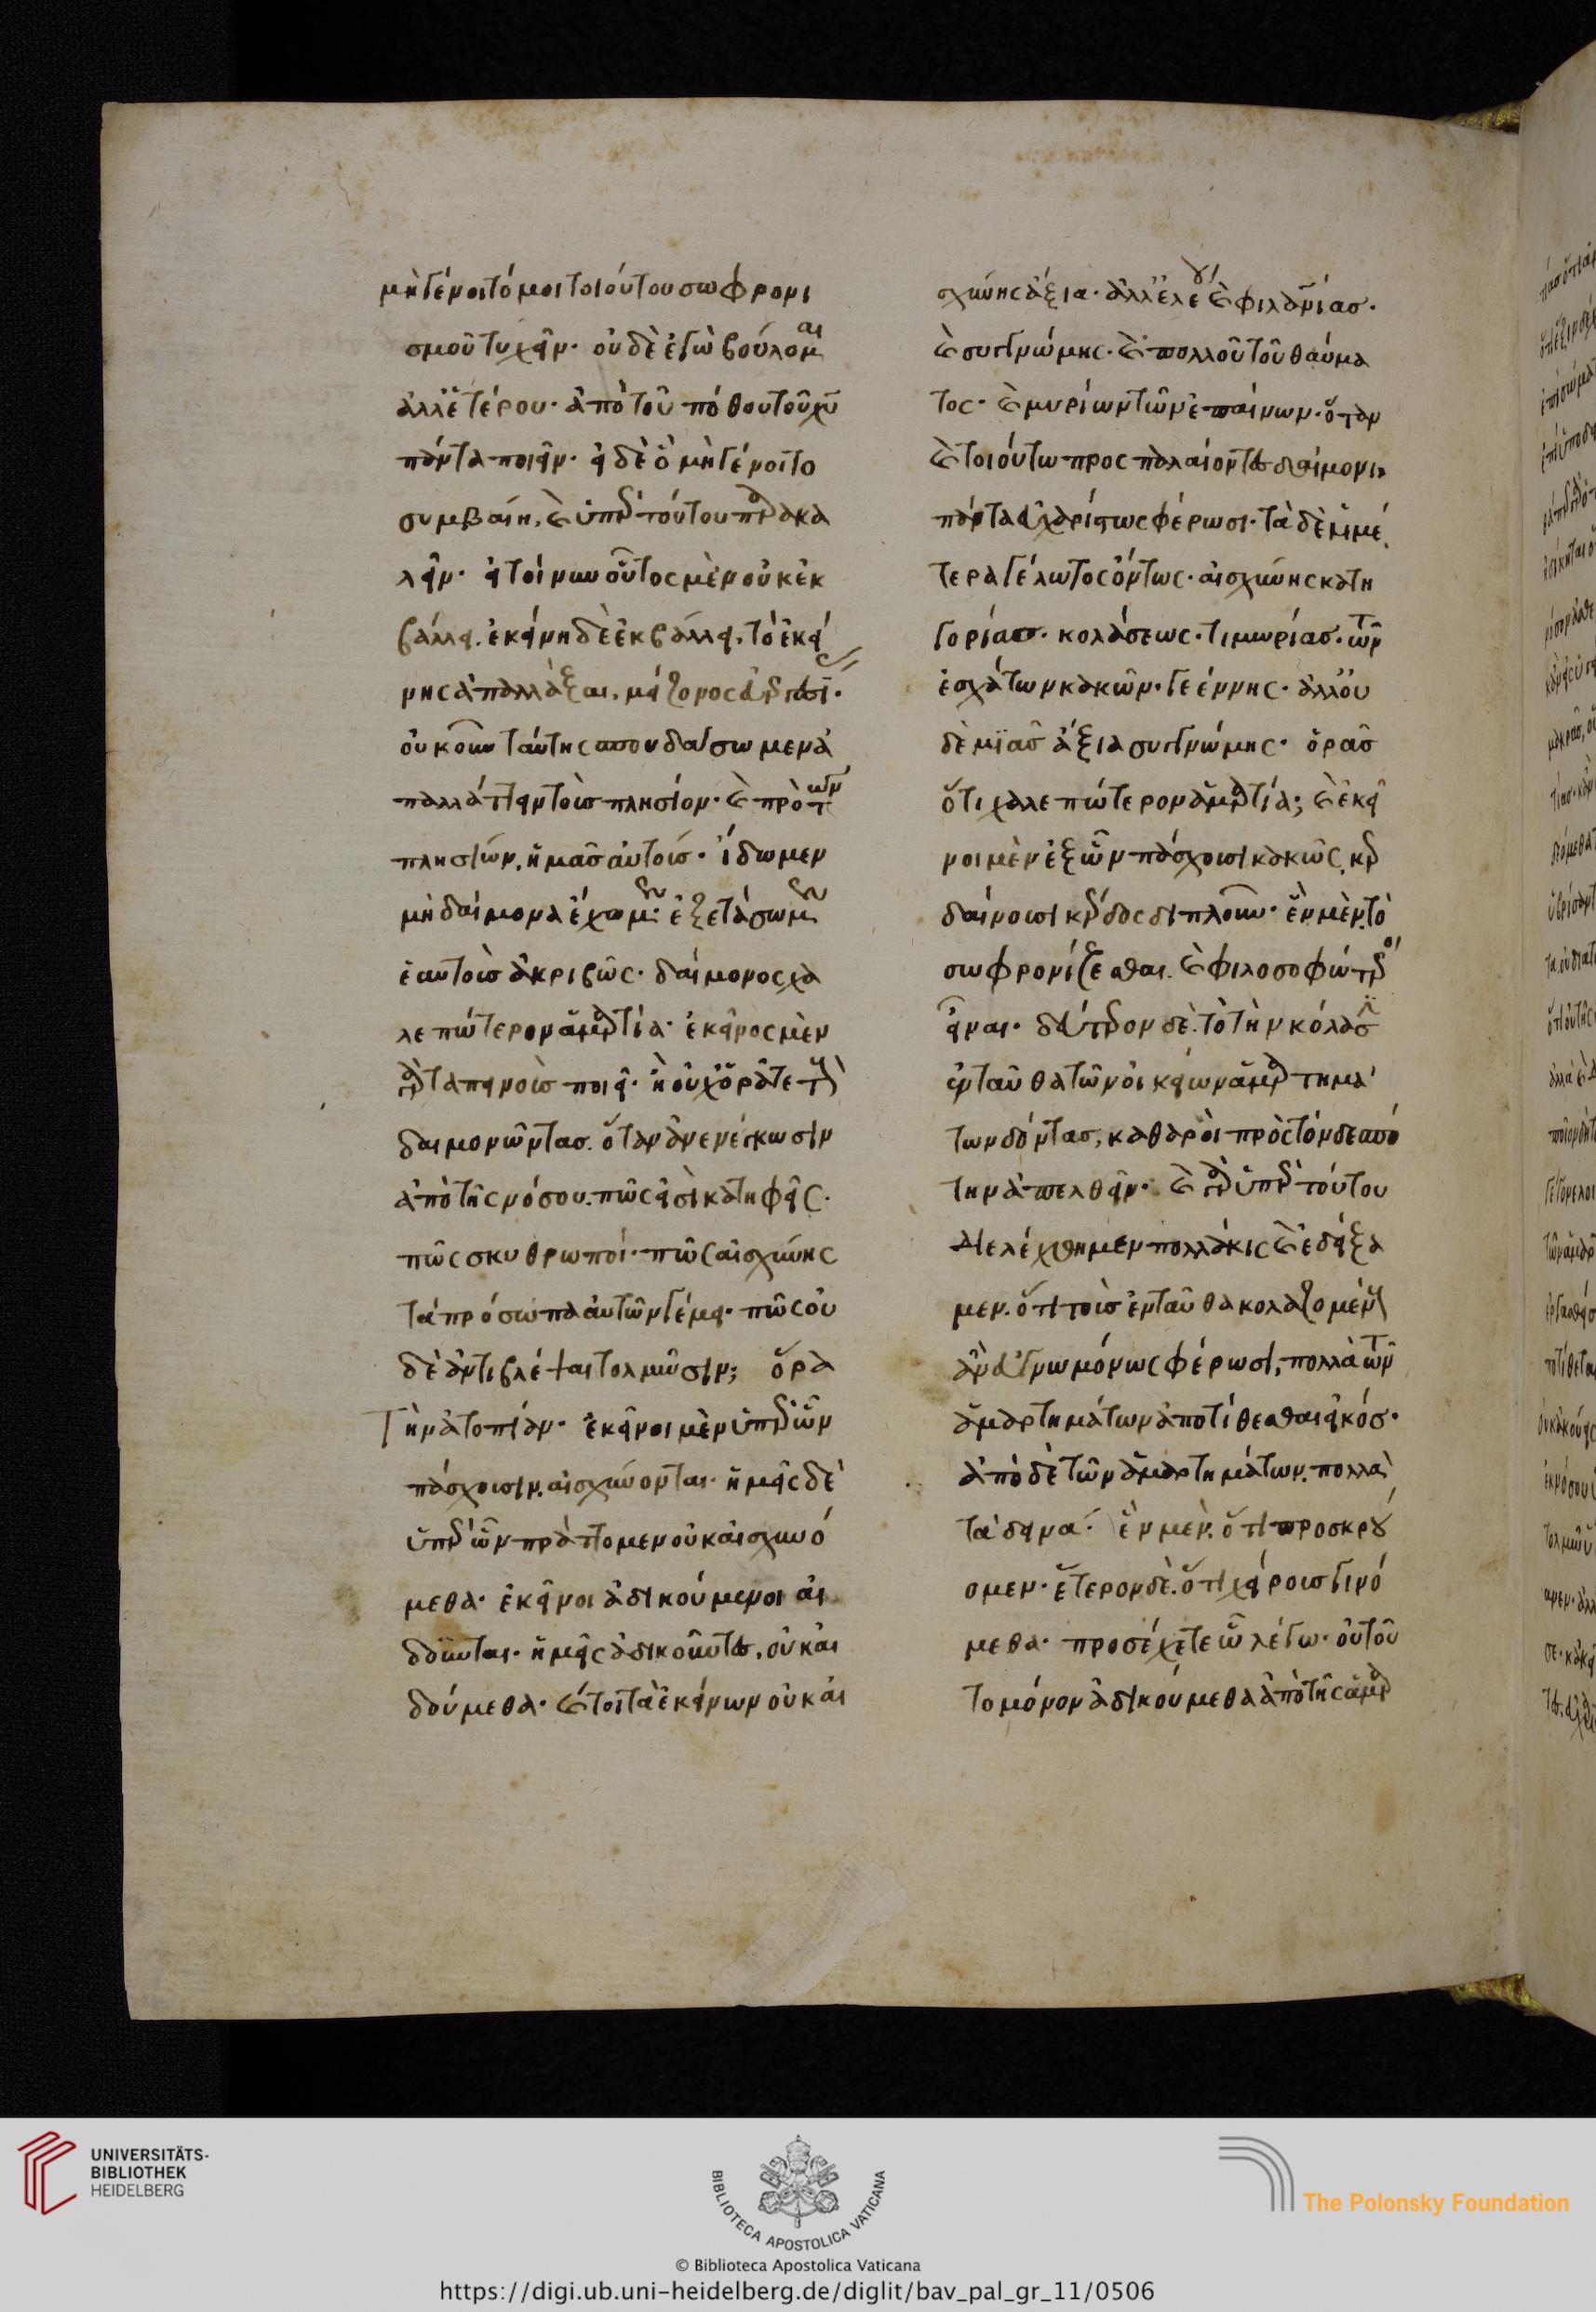 μὴ γένοιτό μοι τοιούτου σωφρονι
σμοῦ τυχεῖν· οὐδὲ ἐγὼ βούλομαι
ἀλλ' ἑτέρου· ἀπὸ τοῦ πόθου τοῦ χυ
πάντα ποιεῖν· εἰ δὲ ὃ μὴ γένοιτο
συμβαίη, καὶ ὑπὲρ τούτου παρακα
λεῖν· εἰ τοίνυν οὗτος μὲν οὐκ ἐκ
βάλλει. ἐκείνη δὲ ἐκβάλλει, τὸ ἐκεί
νης ἀπαλλάξαι, μείζονος εὐεργεσί·
οὐκοῦν ταύτης σπουδάσωμεν ἀ
παλλάττειν τοὺς πλησίον· καὶ πρὸ τῶν
πλησίων. ἡμᾶς αὐτούς· ἴδωμεν
μὴ δαίμονα ἔχωμεν· ἐξετάσωμεν
ἑαυτοὺς ἀκριβῶς· δαίμονος χα
λεπώτερον ἁμαρτία· ἐκεῖνος μὲν
γὰρ ταπεινοὺς ποιεῖ· ἢ οὐχ ὁρᾶτε τοὺς
δαιμονῶντας. ὅταν ἀνενέγκωσιν
ἀπὸ τῆς νόσου. πῶς εἰσὶ κατηφεῖς·
πῶς σκυθρωποί· πῶς αἰσχύνης
τὰ πρόσωπα αὐτῶν γέμει· πῶς οὐ
δὲ ἀντιβλέψαι τολμῶσιν; ὅρα
τὴν ἀτοπίαν· ἐκεῖνοι μὲν ὑπὲρ ὧν
πάσχουσιν. αἰσχύνονται· ἡμεῖς δὲ
ὑπὲρ ὧν πράττομεν οὐκ αἰσχυνό
μεθα· ἐκεῖνοι ἀδικούμενοι αἰ
δοῦνται· ἡμεῖς ἀδικοῦντες, οὐκ αἰ
δούμεθα· καίτοι τὰ ἐκείνων οὐκ αἰ
σχύνης ἄξια· ἀλλ' ἐλέου καὶ φιλανίας·
καὶ συγγνώμης· καὶ πολλοῦ τοῦ θαύμα
τος· καὶ μυρίων τῶν ἐπαίνων· ὅταν
καὶ τοιούτω προσπαλαίοντες δαίμονι
πάντα εὐχαρίστως φέρωσι· τὰ δὲ ἡμέ
τερα γέλωτος ὄντως· αἰσχύνης κατη
γορίας· κολάσεως· τιμωρίας· τῶν
ἐσχάτων κακῶν· γεέννης· ἀλλ' οὐ
δὲ μιᾶς ἄξια συγγνώμης· ὁρᾶς
ὅτι χαλεπώτερον ἁμαρτία; καὶ ἐκεῖ
νοι μὲν ἐξ ὧν πάσχουσι κακῶς, κερ
δαίνουσι κέρδος διπλοῦν· ἓν μὲν. τὸ
σωφρονίζεσθαι. καὶ φιλοσοφώτεροι
εἶναι· δεύτερον δὲ. τὸ τὴν κόλασ
ἐνταῦθα τῶν οἰκείων ἁμαρτημά
των δόντας, καθαροὶ πρὸς τὸν δεσπό
την ἀπελθεῖν· καὶ γὰρ ὑπὲρ τούτου
διελέχθημεν πολλάκις καὶ ἐδείξα
μεν. ὅτι τοὺς ἐνταῦθα κολαζομένους
ἂν εὐγνωμόνως φέρωσι, πολλὰ τῶν
ἁμαρτημάτων ἀποτίθεσθαι εἰκός·
ἀπὸ δὲ τῶν ἁμαρτημάτων. πολλὰ
τὰ δεινά· ἓν μὲν. ὅτι προσκρού
ομεν· ἕτερον δὲ. ὅτι χείρους γινό
μεθα· προσέχετε ὧ λέγω· οὐ τοῦ
το μόνον ἀδικούμεθα ἀπὸ τῆς ἁμαρ
UNIVERSITÄTS-
BIBLIOTHEK
HEIDELBERG
BIBLIOTECA APOSTOLICA VATICANA
The Polonsky Foundation
© Biblioteca Apostolica Vaticana
https://digi.ub.uni-heidelberg.de/diglit/bav_pal_gr_11/0506